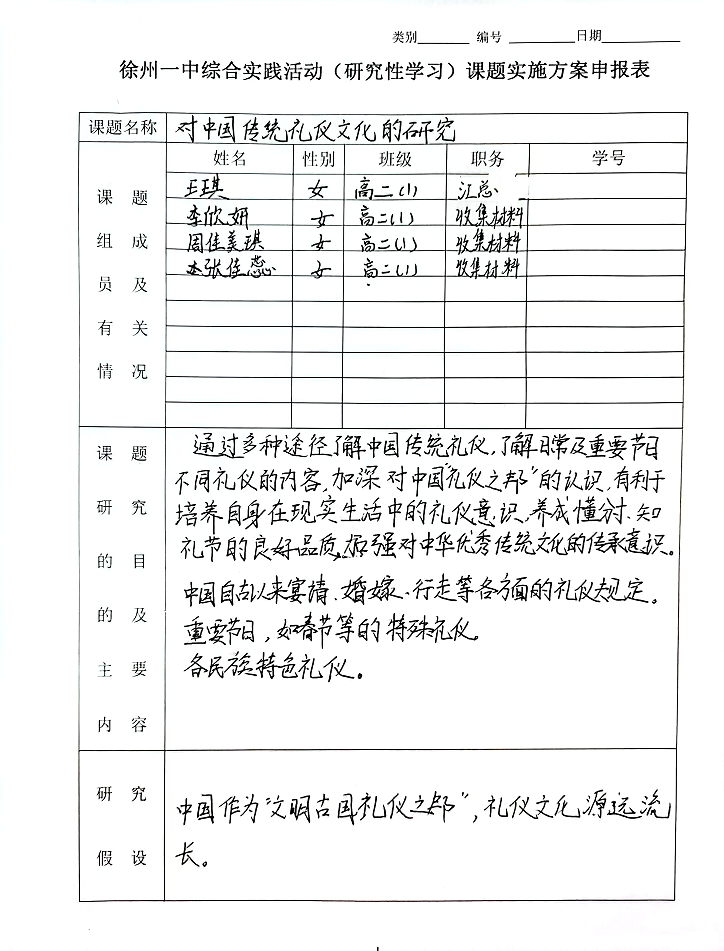 类别 编号 日期
徐州一中综合实践活动（研究性学习）课题实施方案申报表
课题名称 对中国传统礼仪文化的研究
课题组成员及有关情况
姓名 性别 班级 职务 学号
王琪 女 高二(1) 汇总
李欣妍 女 高二(1) 收集材料
周佳美琪 女 高二(1) 收集材料
张佳蕊 女 高二(1) 收集材料
课题研究的目的及主要内容
通过多种途径了解中国传统礼仪,了解日常及重要节日
不同礼仪的内容,加深对中国“礼仪之邦”的认识,有利于
培养自身在现实生活中的礼仪意识,养成懂分寸、知
礼节的良好品质,增强对中华优秀传统文化的传承意识。
中国自古以来宴请、婚嫁、行走等各方面的礼仪规定。
重要节日,如春节等的特殊礼仪。
各民族特色礼仪。
研究假设
中国作为“文明古国礼仪之邦”,礼仪文化源远流
长。